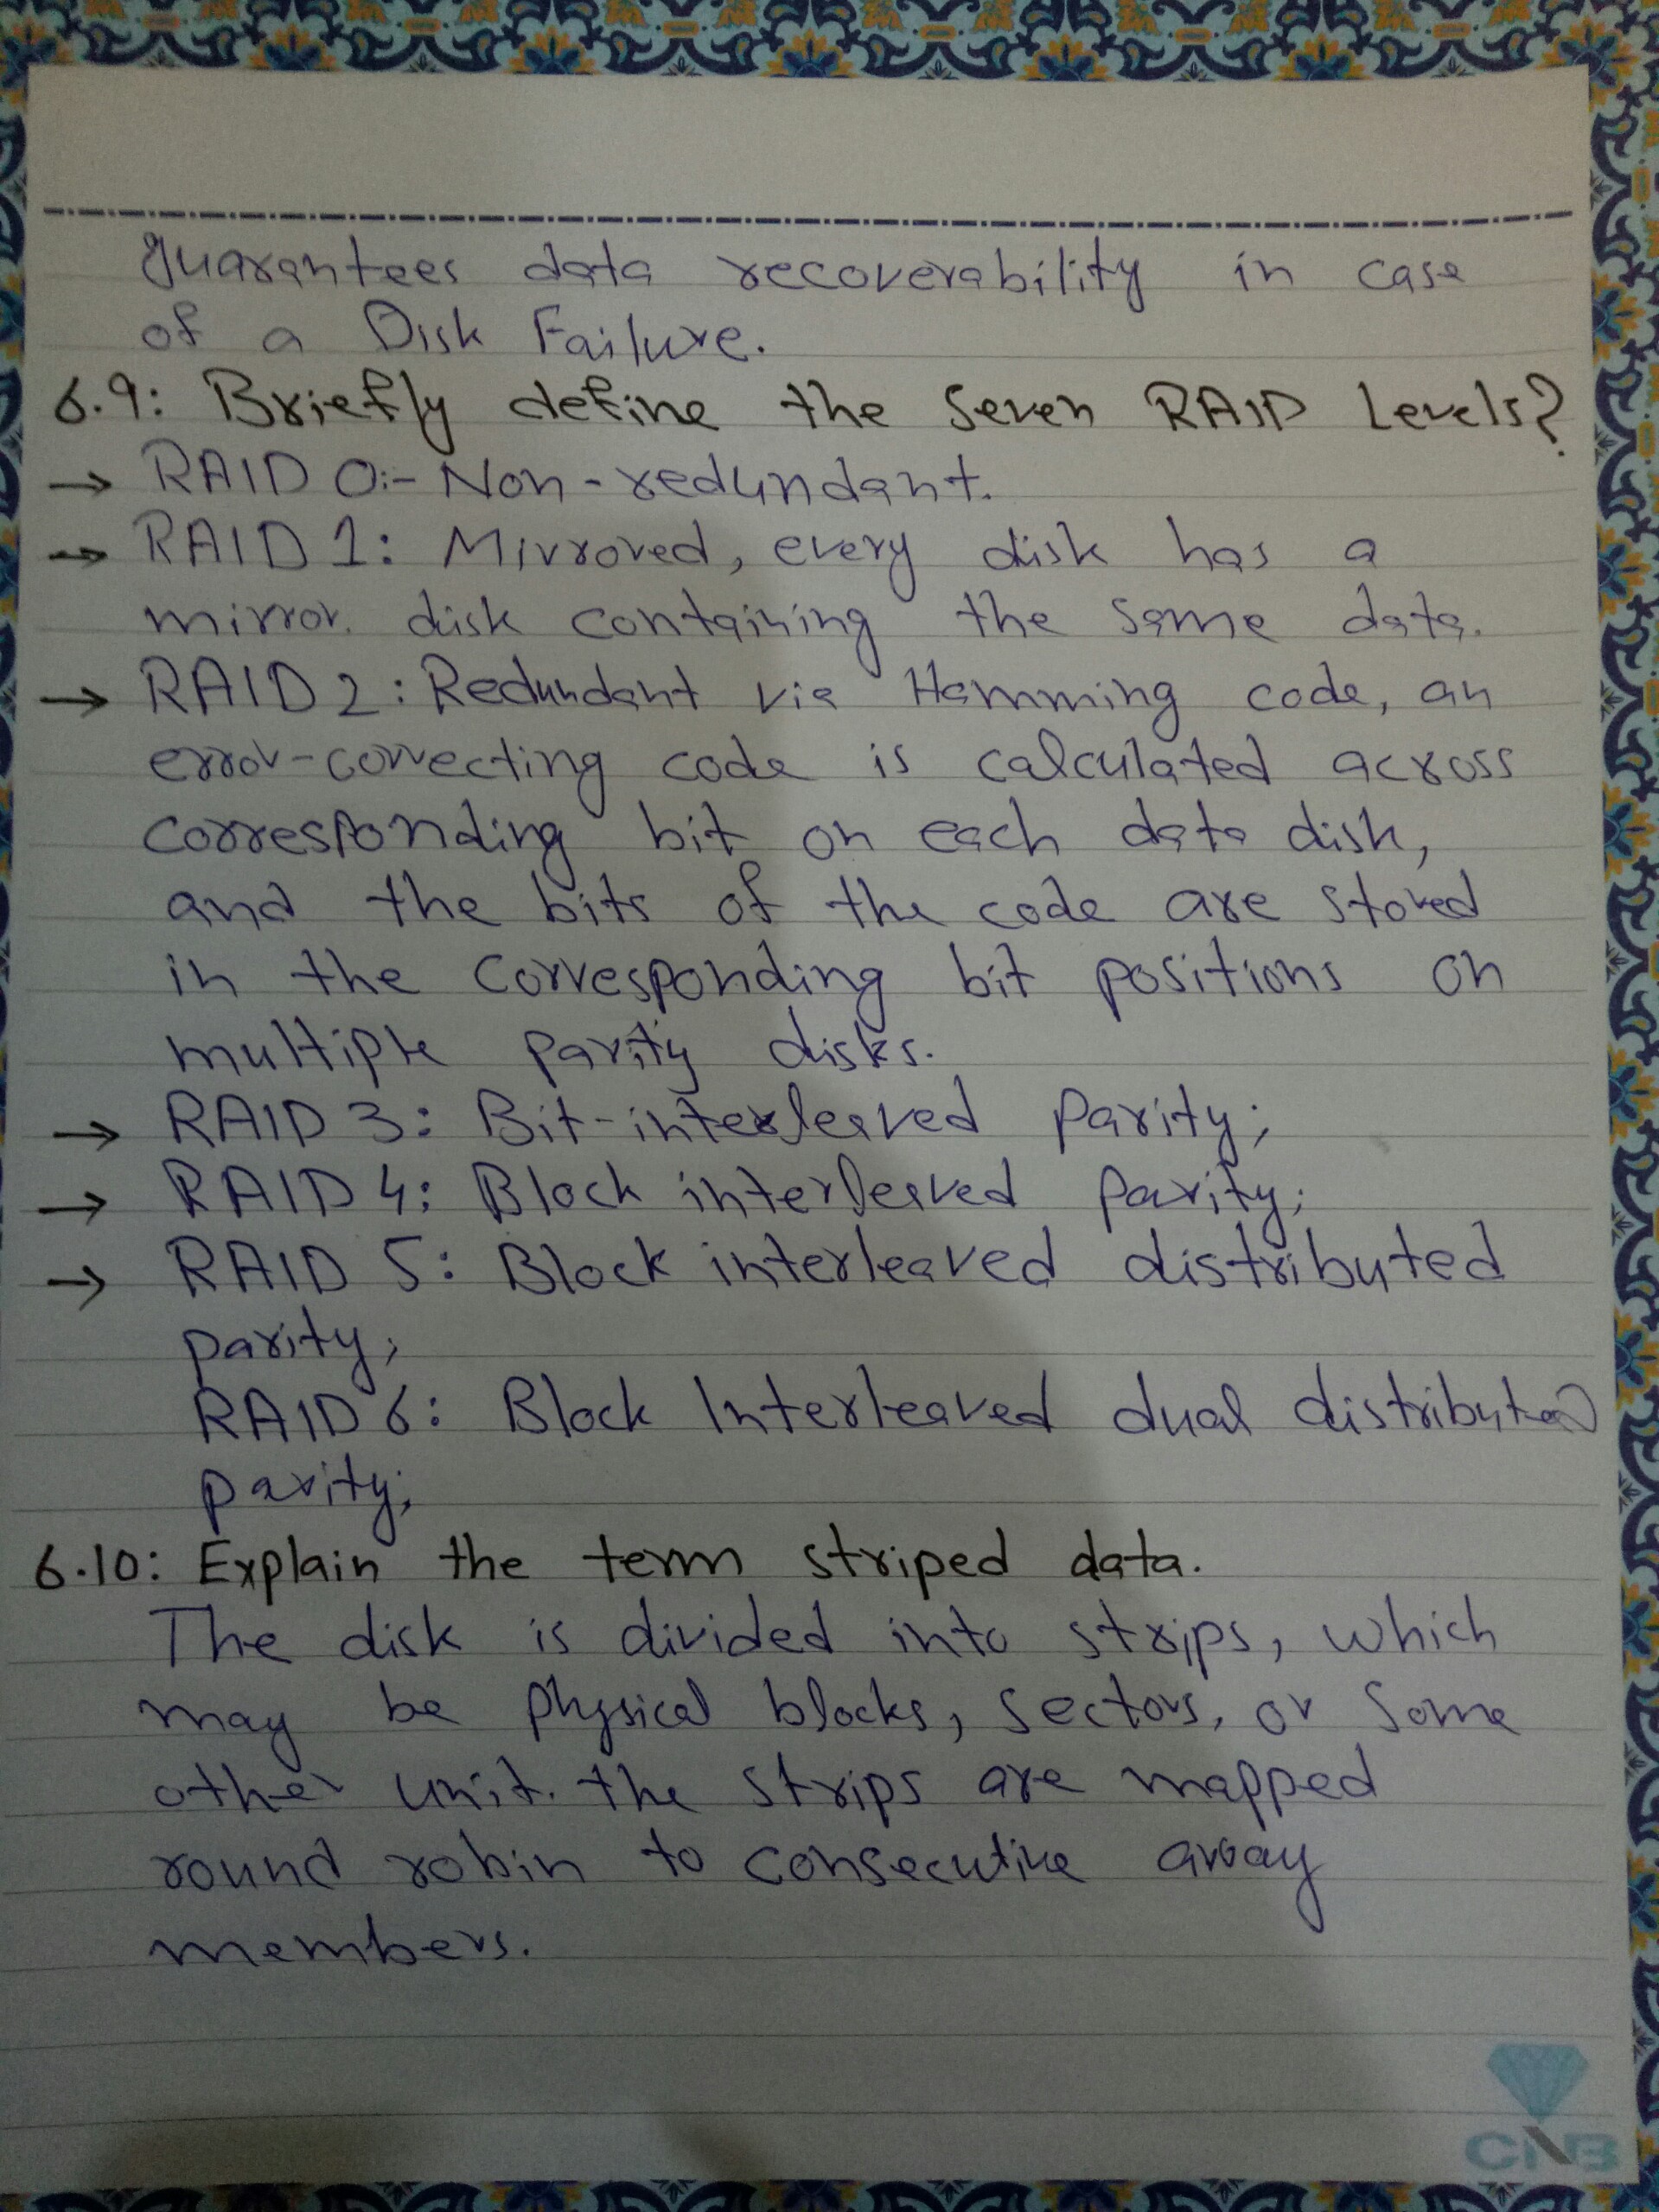 guarantees data recoverability in case
of a Disk Failure.
6.9: Briefly define the Seven RAID Levels?
→ RAID 0:- Non-redundant.
→ RAID 1: Mirrored, every disk has a
mirror. disk containing the same data.
→ RAID 2: Redundant via Hamming code, an
error-correcting code is calculated across
corresponding bit on each data disk,
and the bits of the code are stored
in the corresponding bit positions on
multiple parity disks.
→ RAID 3: Bit-interleaved parity;
→ RAID 4: Block interleaved parity;
→ RAID 5: Block interleaved distributed
parity;
RAID 6: Block Interleaved dual distributed
parity;
6.10: Explain the term striped data.
The disk is divided into strips, which
may be physical blocks, sectors, or some
other unit. the strips are mapped
round robin to consecutive array
members.
CNB